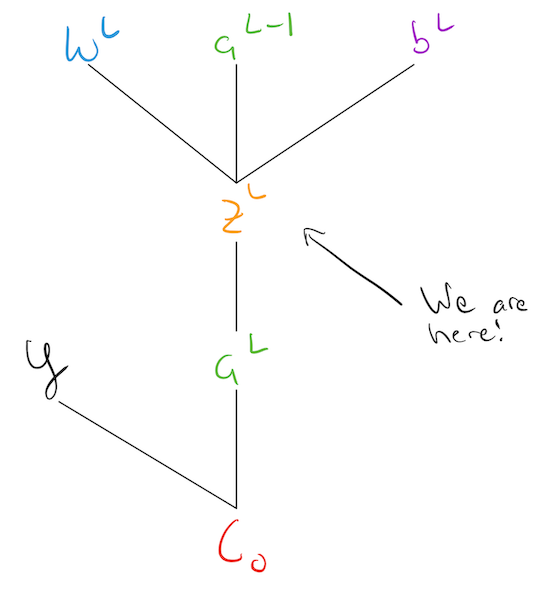 w^L a^{L-1} b^L
z^L
We are
here!
a^L
y
C_0